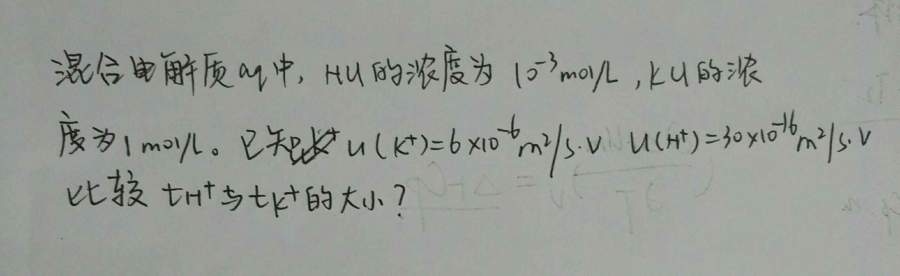 混合电解质aq中，HCl的浓度为 10⁻³mol/L，KCl的浓
度为1mol/L。已知 U(K⁺)=6×10⁻⁶m²/s·V U(H⁺)=30×10⁻¹⁶m²/s·V
比较 tH⁺与tK⁺的大小？